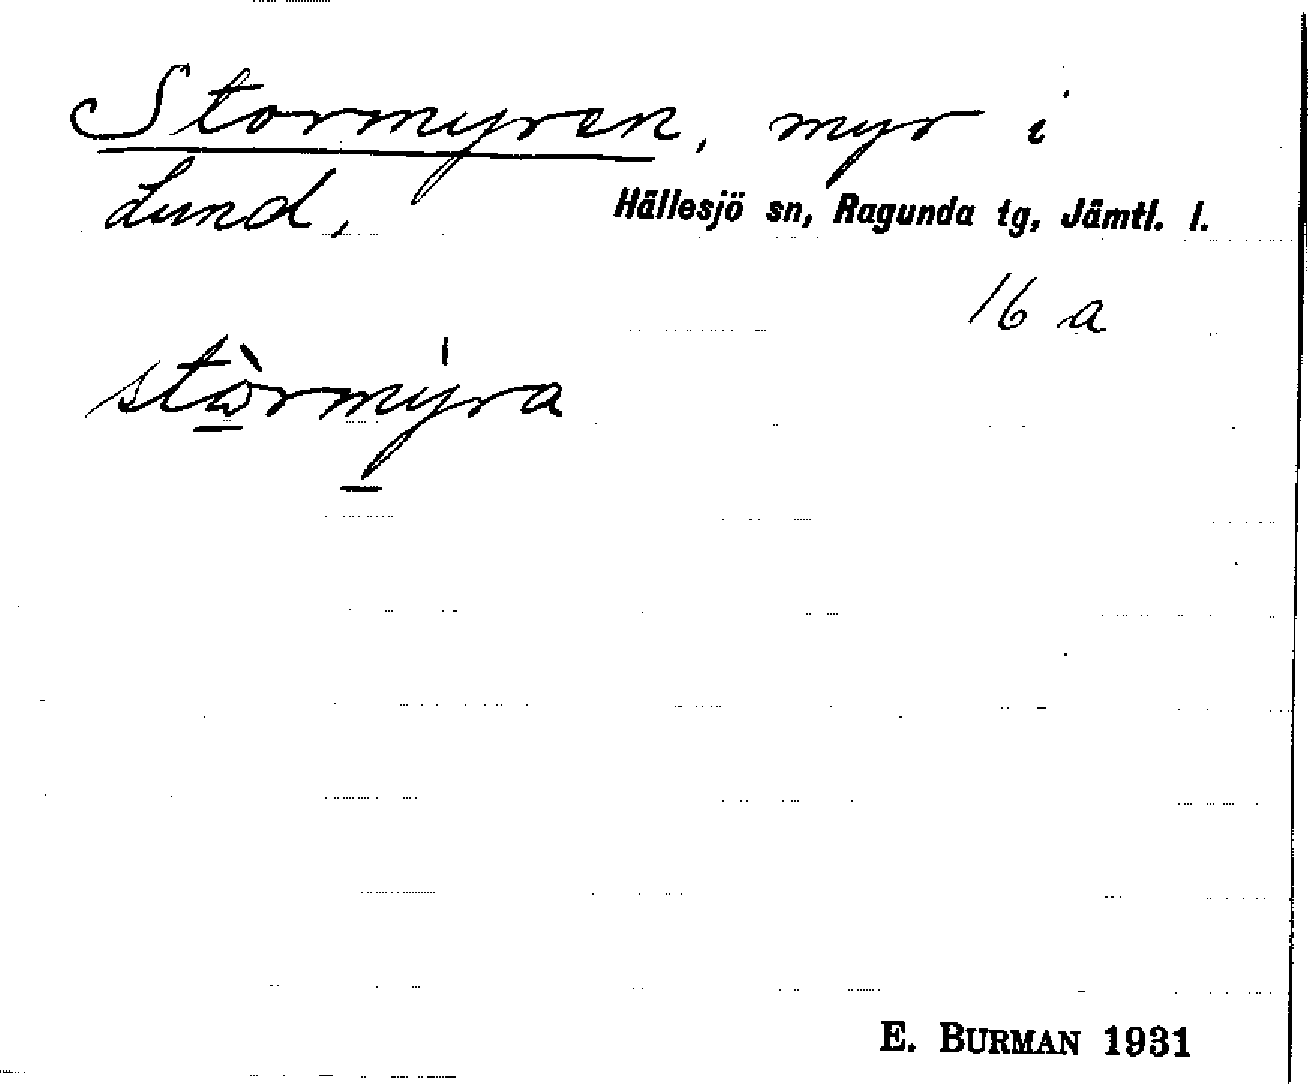 Stormyren, myr i
Lund, Hällesjö sn, Ragunda tg, Jämtl. l.
16 a
stὼrmýra
E. BURMAN 1931